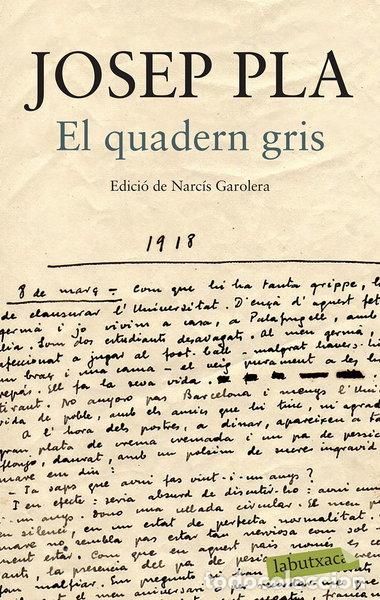 JOSEP PLA
El quadern gris
Edició de Narcís Garolera
1918
8 de març = Com que hi ha tanta grippe, h
de clausurar l'Universitat. D'ençà d'aquest fet
germà i jo vivim a casa, a Palafrugell, amb
lia. Som dos estudiants desvagats. Al meu germà,
afeccionat a jugar al foot-ball – malgrat haver-hi
un braç i una cama – el veig purament a les ho
repàs. Ell fa la seva vida.
tirant. No anyoro pas Barcelona i menys l'Uni
vida de poble, amb els amics que hi tinc, m'agrad
A l'hora dels postres, a dinar, apareixen a ta
gran plata de crema cremada i un pa de pessic
flonjo, daurat, amb un polsim de sucre ingràvid
mare em diu:
– Ja saps que avui fas vint-i-un anys?
I en efecte: seria absurd de discutir-ho: avui
-un anys. Dono una ullada circular. El meu p
en silenci, en un estat de perfecta normalitat.
mare no sembla pas estar tan nerviosa com sol
mare. Com que en aquest país només es
ants, la presència del pa de pessic
fan malfiar. Em pregunto
labutxaca
todocoleccion